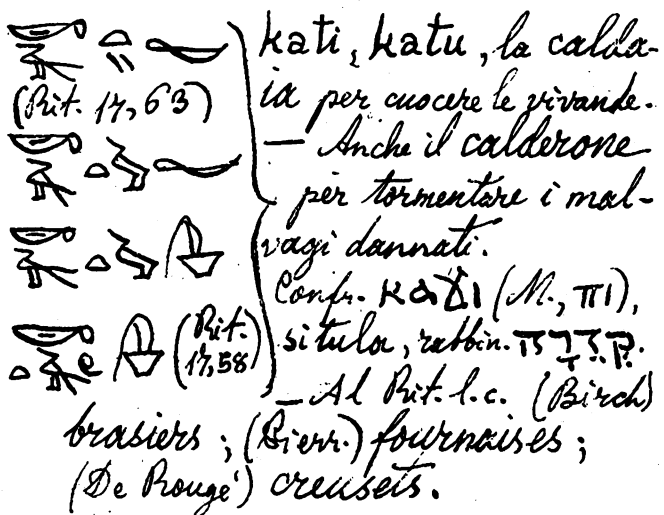 kati, katu, la calda-
(Rit. 17, 63) ia per cuocere le vivande.
— Anche il calderone
per tormentare i mal-
vagi dannati.
Confr. ⲕⲁϫⲓ (M., ⲡⲓ),
(Rit. 17,58) situla, rabbin. קְדֵרָה.
— Al Rit. l.c. (Birch)
brasiers; (Pierr.) fournaises;
(De Rougé) creusets.